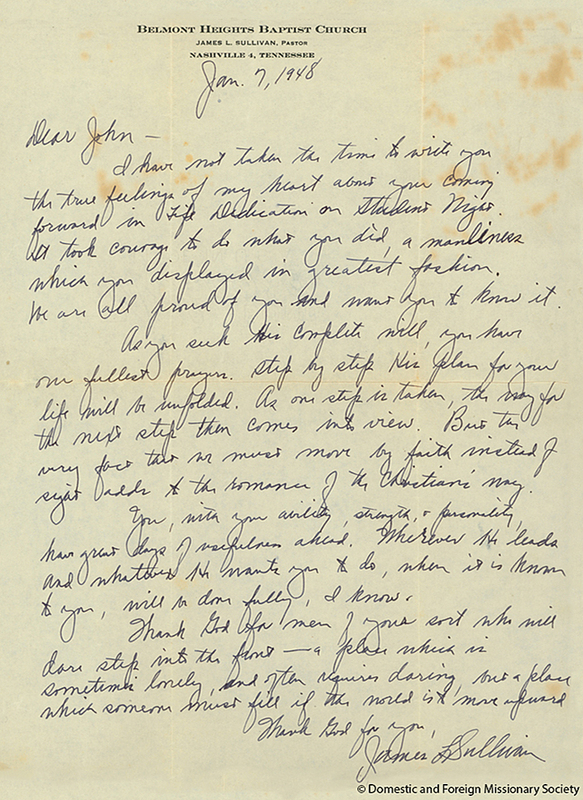 BELMONT HEIGHTS BAPTIST CHURCH
JAMES L. SULLIVAN, PASTOR
NASHVILLE 4, TENNESSEE
Jan. 7, 1948
Dear John —
I have not taken the time to write you
the true feelings of my heart about your coming
forward in Life Dedication on Student Night.
It took courage to do what you did, a manliness
which you displayed in greatest fashion.
We are all proud of you and want you to know it.
As you seek His complete will, you have
our fullest prayers. Step by step His plan for your
life will be unfolded. As one step is taken, the way for
the next step then comes into view. But the
very fact that we must move by faith instead of
sight adds to the romance of the Christian's way.
You, with your ability, strength, & personality,
have great days of usefulness ahead. Wherever He leads
and whatever He wants you to do, when it is known
to you, will be done fully, I know.
Thank God for men of your sort who will
dare step into the front — a place which is
sometimes lonely, and often requires daring, but a place
which someone must fill if the world is to move upward
Thank God for you,
James L Sullivan
© Domestic and Foreign Missionary Society